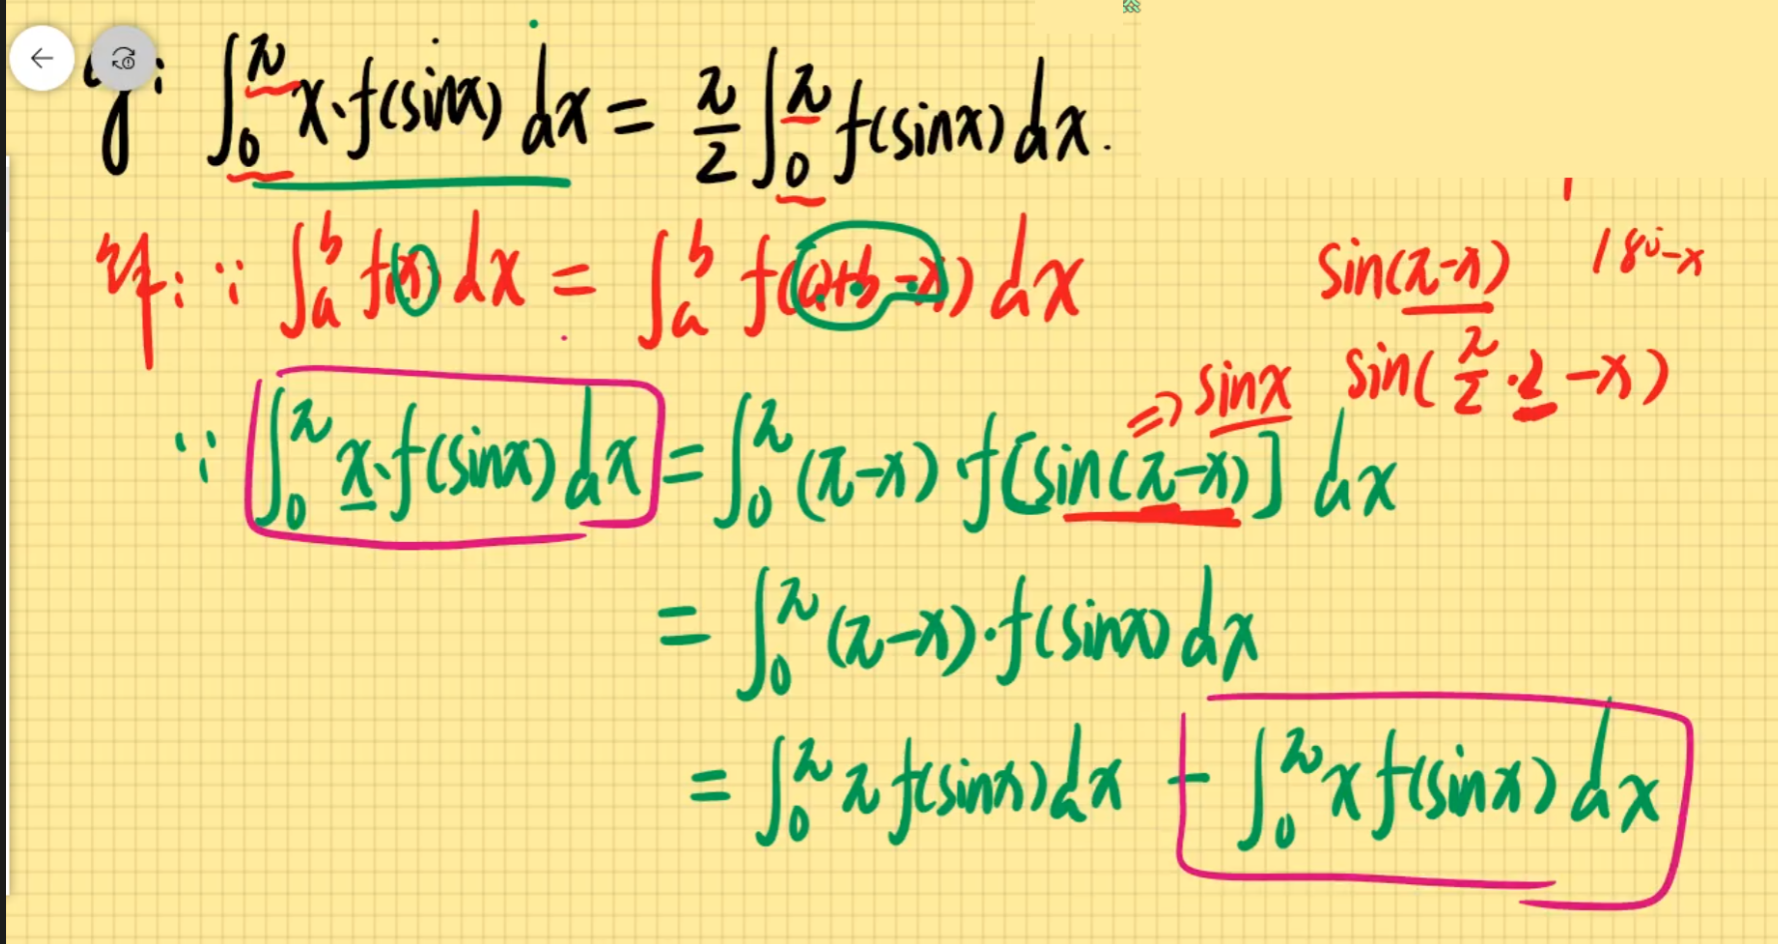 ∫₀^π x·f(sinx) dx = π/2 ∫₀^π f(sinx) dx.
证: ∵ ∫ₐᵇ f(x) dx = ∫ₐᵇ f(a+b-x) dx
sin(π-x) 180-x
⇒ sinx sin(π/2·2-x)
∵ ∫₀^π x·f(sinx) dx = ∫₀^π (π-x)·f[sin(π-x)] dx
= ∫₀^π (π-x)·f(sinx) dx
= ∫₀^π π f(sinx) dx - ∫₀^π x f(sinx) dx